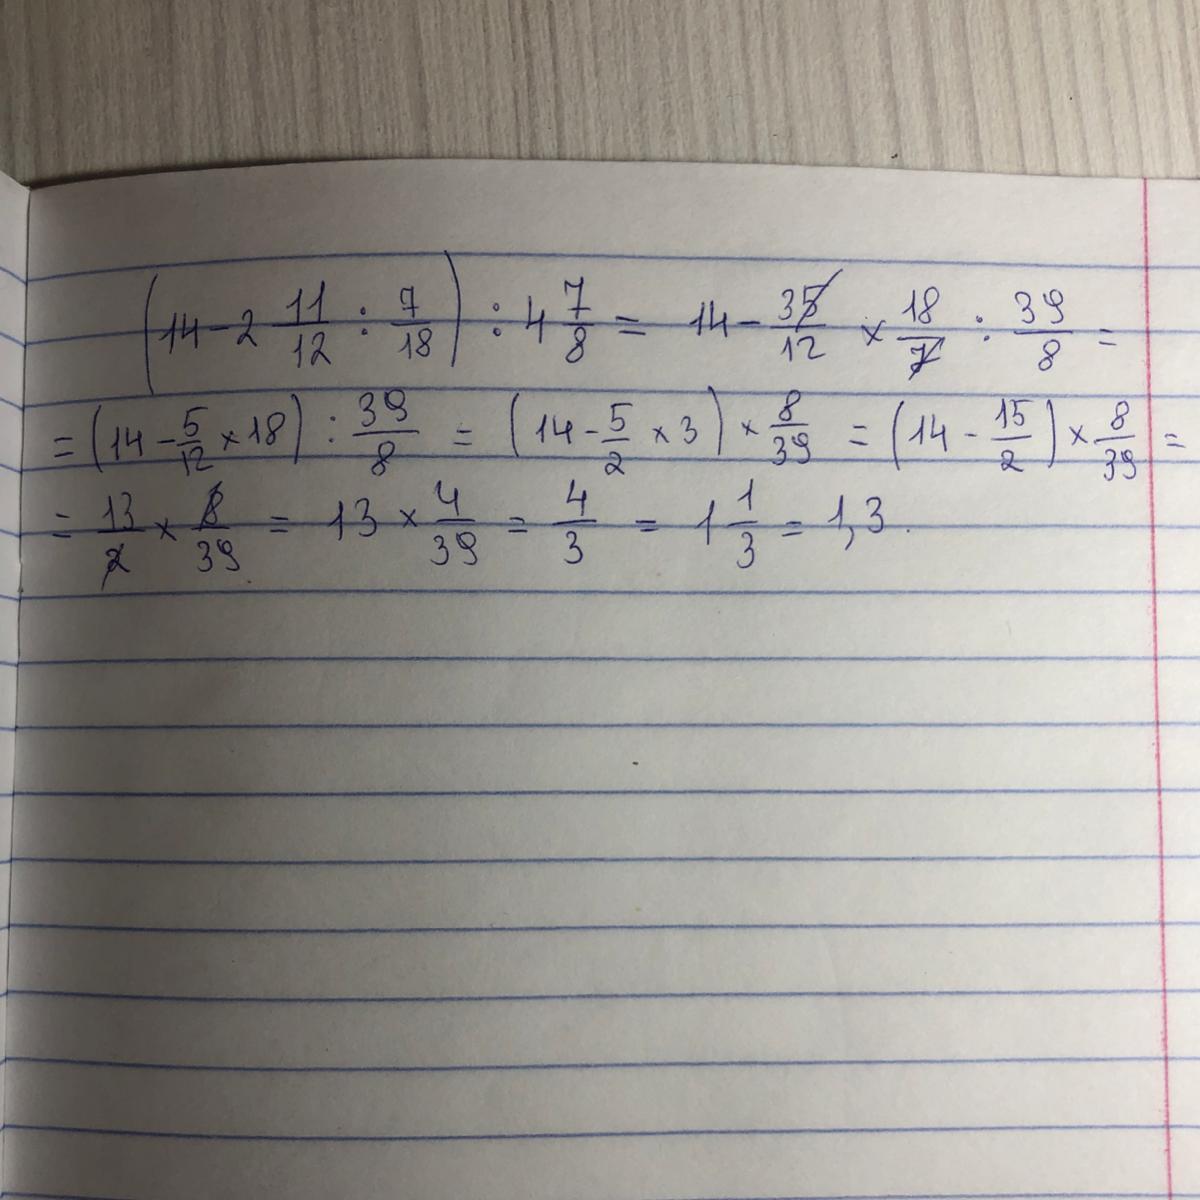 (14 - 2 11/12 : 7/18) : 4 7/8 = 14 - 35/12 × 18/7 : 39/8 =
= (14 - 5/12 × 18) : 39/8 = (14 - 5/2 × 3) × 8/39 = (14 - 15/2) × 8/39 =
= 13/2 × 8/39 = 13 × 4/39 = 4/3 = 1 1/3 = 1,3.